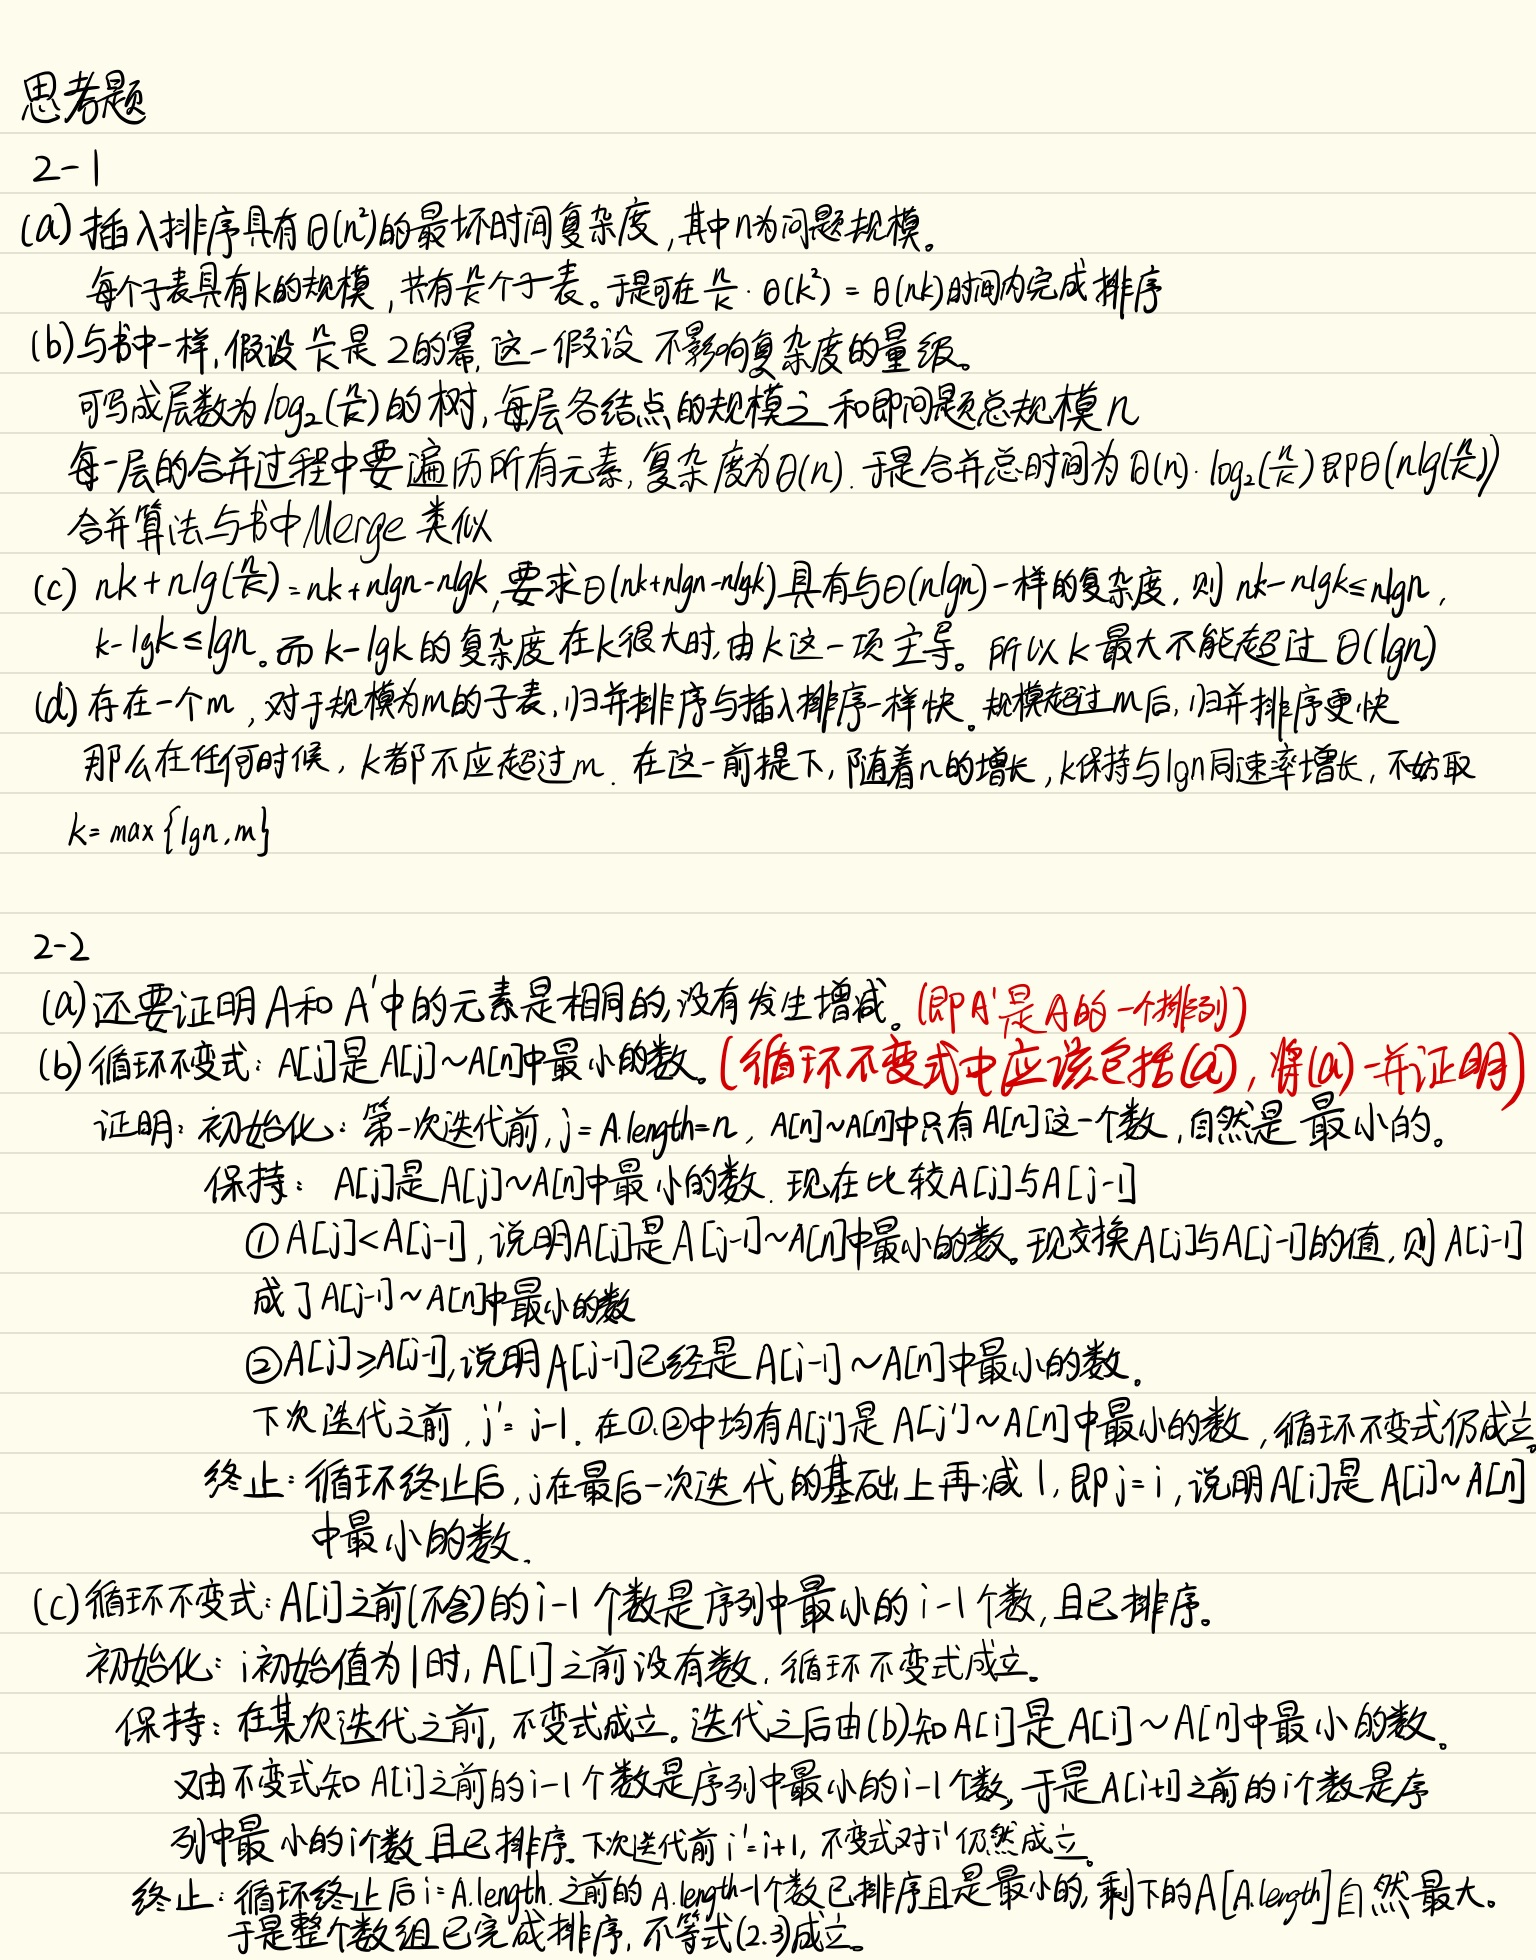 思考题
2-1
(a) 插入排序具有Θ(n²)的最坏时间复杂度,其中n为问题规模。
每个子表具有k的规模,共有n/k个子表。于是可在 n/k · Θ(k²) = Θ(nk)时间内完成排序
(b) 与书中一样,假设n/k是2的幂,这一假设不影响复杂度的量级。
可写成层数为log₂(n/k)的树,每层各结点的规模之和即问题总规模n
每一层的合并过程中要遍历所有元素,复杂度为Θ(n).于是合并总时间为Θ(n)·log₂(n/k)即Θ(nlg(n/k))
合并算法与书中Merge类似
(c) nk+nlg(n/k)=nk+nlgn-nlgk,要求Θ(nk+nlgn-nlgk)具有与Θ(nlgn)一样的复杂度,则 nk-nlgk≤nlgn,
k-lgk≤lgn。而k-lgk的复杂度在k很大时,由k这一项主导。所以k最大不能超过Θ(lgn)
(d) 存在一个m,对于规模为m的子表,归并排序与插入排序一样快。规模超过m后,归并排序更快
那么在任何时候,k都不应超过m.在这一前提下,随着n的增长,k保持与lgn同速率增长,不妨取
k=max{lgn,m}
2-2
(a) 还要证明A和A'中的元素是相同的,没有发生增减。(即A'是A的一个排列)
(b) 循环不变式:A[j]是A[j]~A[n]中最小的数。(循环不变式中应该包括(a),将(a)一并证明)
证明:初始化:第一次迭代前,j=A.length=n,A[n]~A[n]中只有A[n]这一个数,自然是最小的。
保持:A[j]是A[j]~A[n]中最小的数.现在比较A[j]与A[j-1]
①A[j]<A[j-1],说明A[j]是A[j-1]~A[n]中最小的数。现交换A[j]与A[j-1]的值,则A[j-1]
成了A[j-1]~A[n]中最小的数
②A[j]≥A[j-1],说明A[j-1]已经是A[j-1]~A[n]中最小的数。
下次迭代之前,j'=j-1.在①,②中均有A[j']是A[j']~A[n]中最小的数,循环不变式仍成立。
终止:循环终止后,j在最后一次迭代的基础上再减1,即j=i,说明A[i]是A[i]~A[n]
中最小的数.
(c) 循环不变式:A[i]之前(不含)的i-1个数是序列中最小的i-1个数,且已排序。
初始化:i初始值为1时,A[1]之前没有数,循环不变式成立。
保持:在某次迭代之前,不变式成立。迭代之后由(b)知A[i]是A[i]~A[n]中最小的数。
又由不变式知A[i]之前的i-1个数是序列中最小的i-1个数,于是A[i+1]之前的i个数是序
列中最小的i个数且已排序.下次迭代前i'=i+1,不变式对i'仍然成立。
终止:循环终止后i=A.length.之前的A.length-1个数已排序且是最小的,剩下的A[A.length]自然最大。
于是整个数组已完成排序,不等式(2.3)成立。